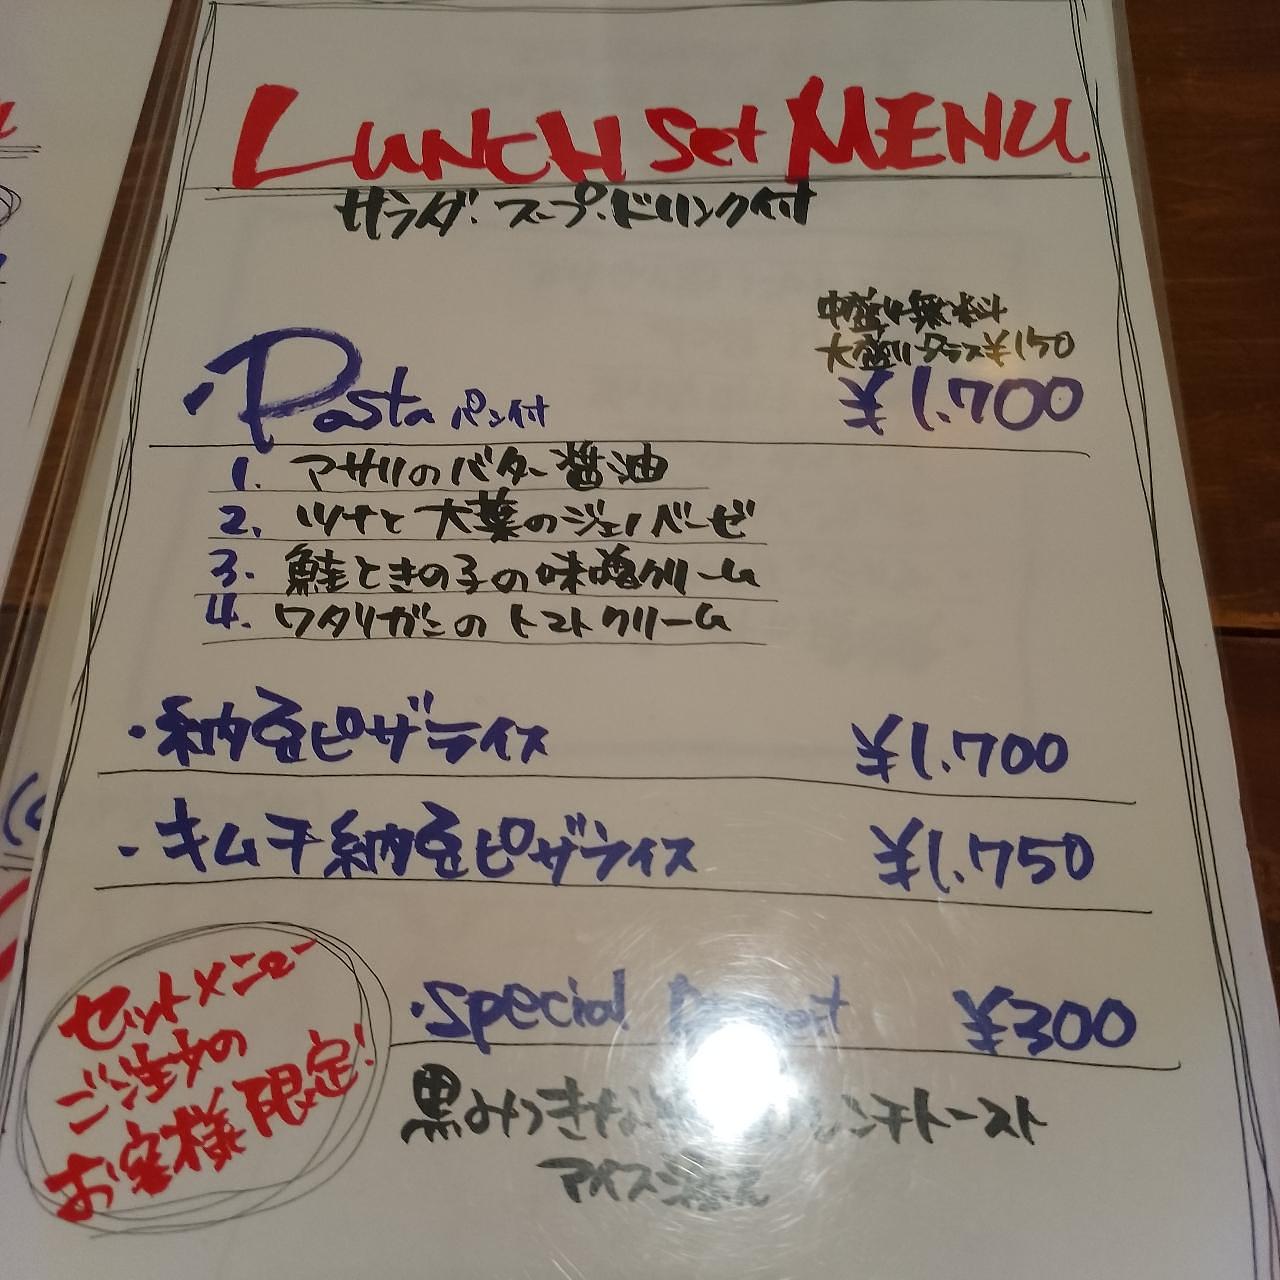 LUNCH Set MENU
サラダ・スープ・ドリンク付
中盛り無料
大盛りプラス¥150
・Pasta パン付 ¥1.700
1. アサリのバター醤油
2. ツナと大葉のジェノベーゼ
3. 鮭ときの子の味噌クリーム
4. ワタリガニのトマトクリーム
・納豆ピザライス ¥1.700
・キムチ納豆ピザライス ¥1.750
セットメニュー
ご注文の
お客様限定!
・Special Dessert ¥300
黒みつきな フレンチトースト
アイス添え